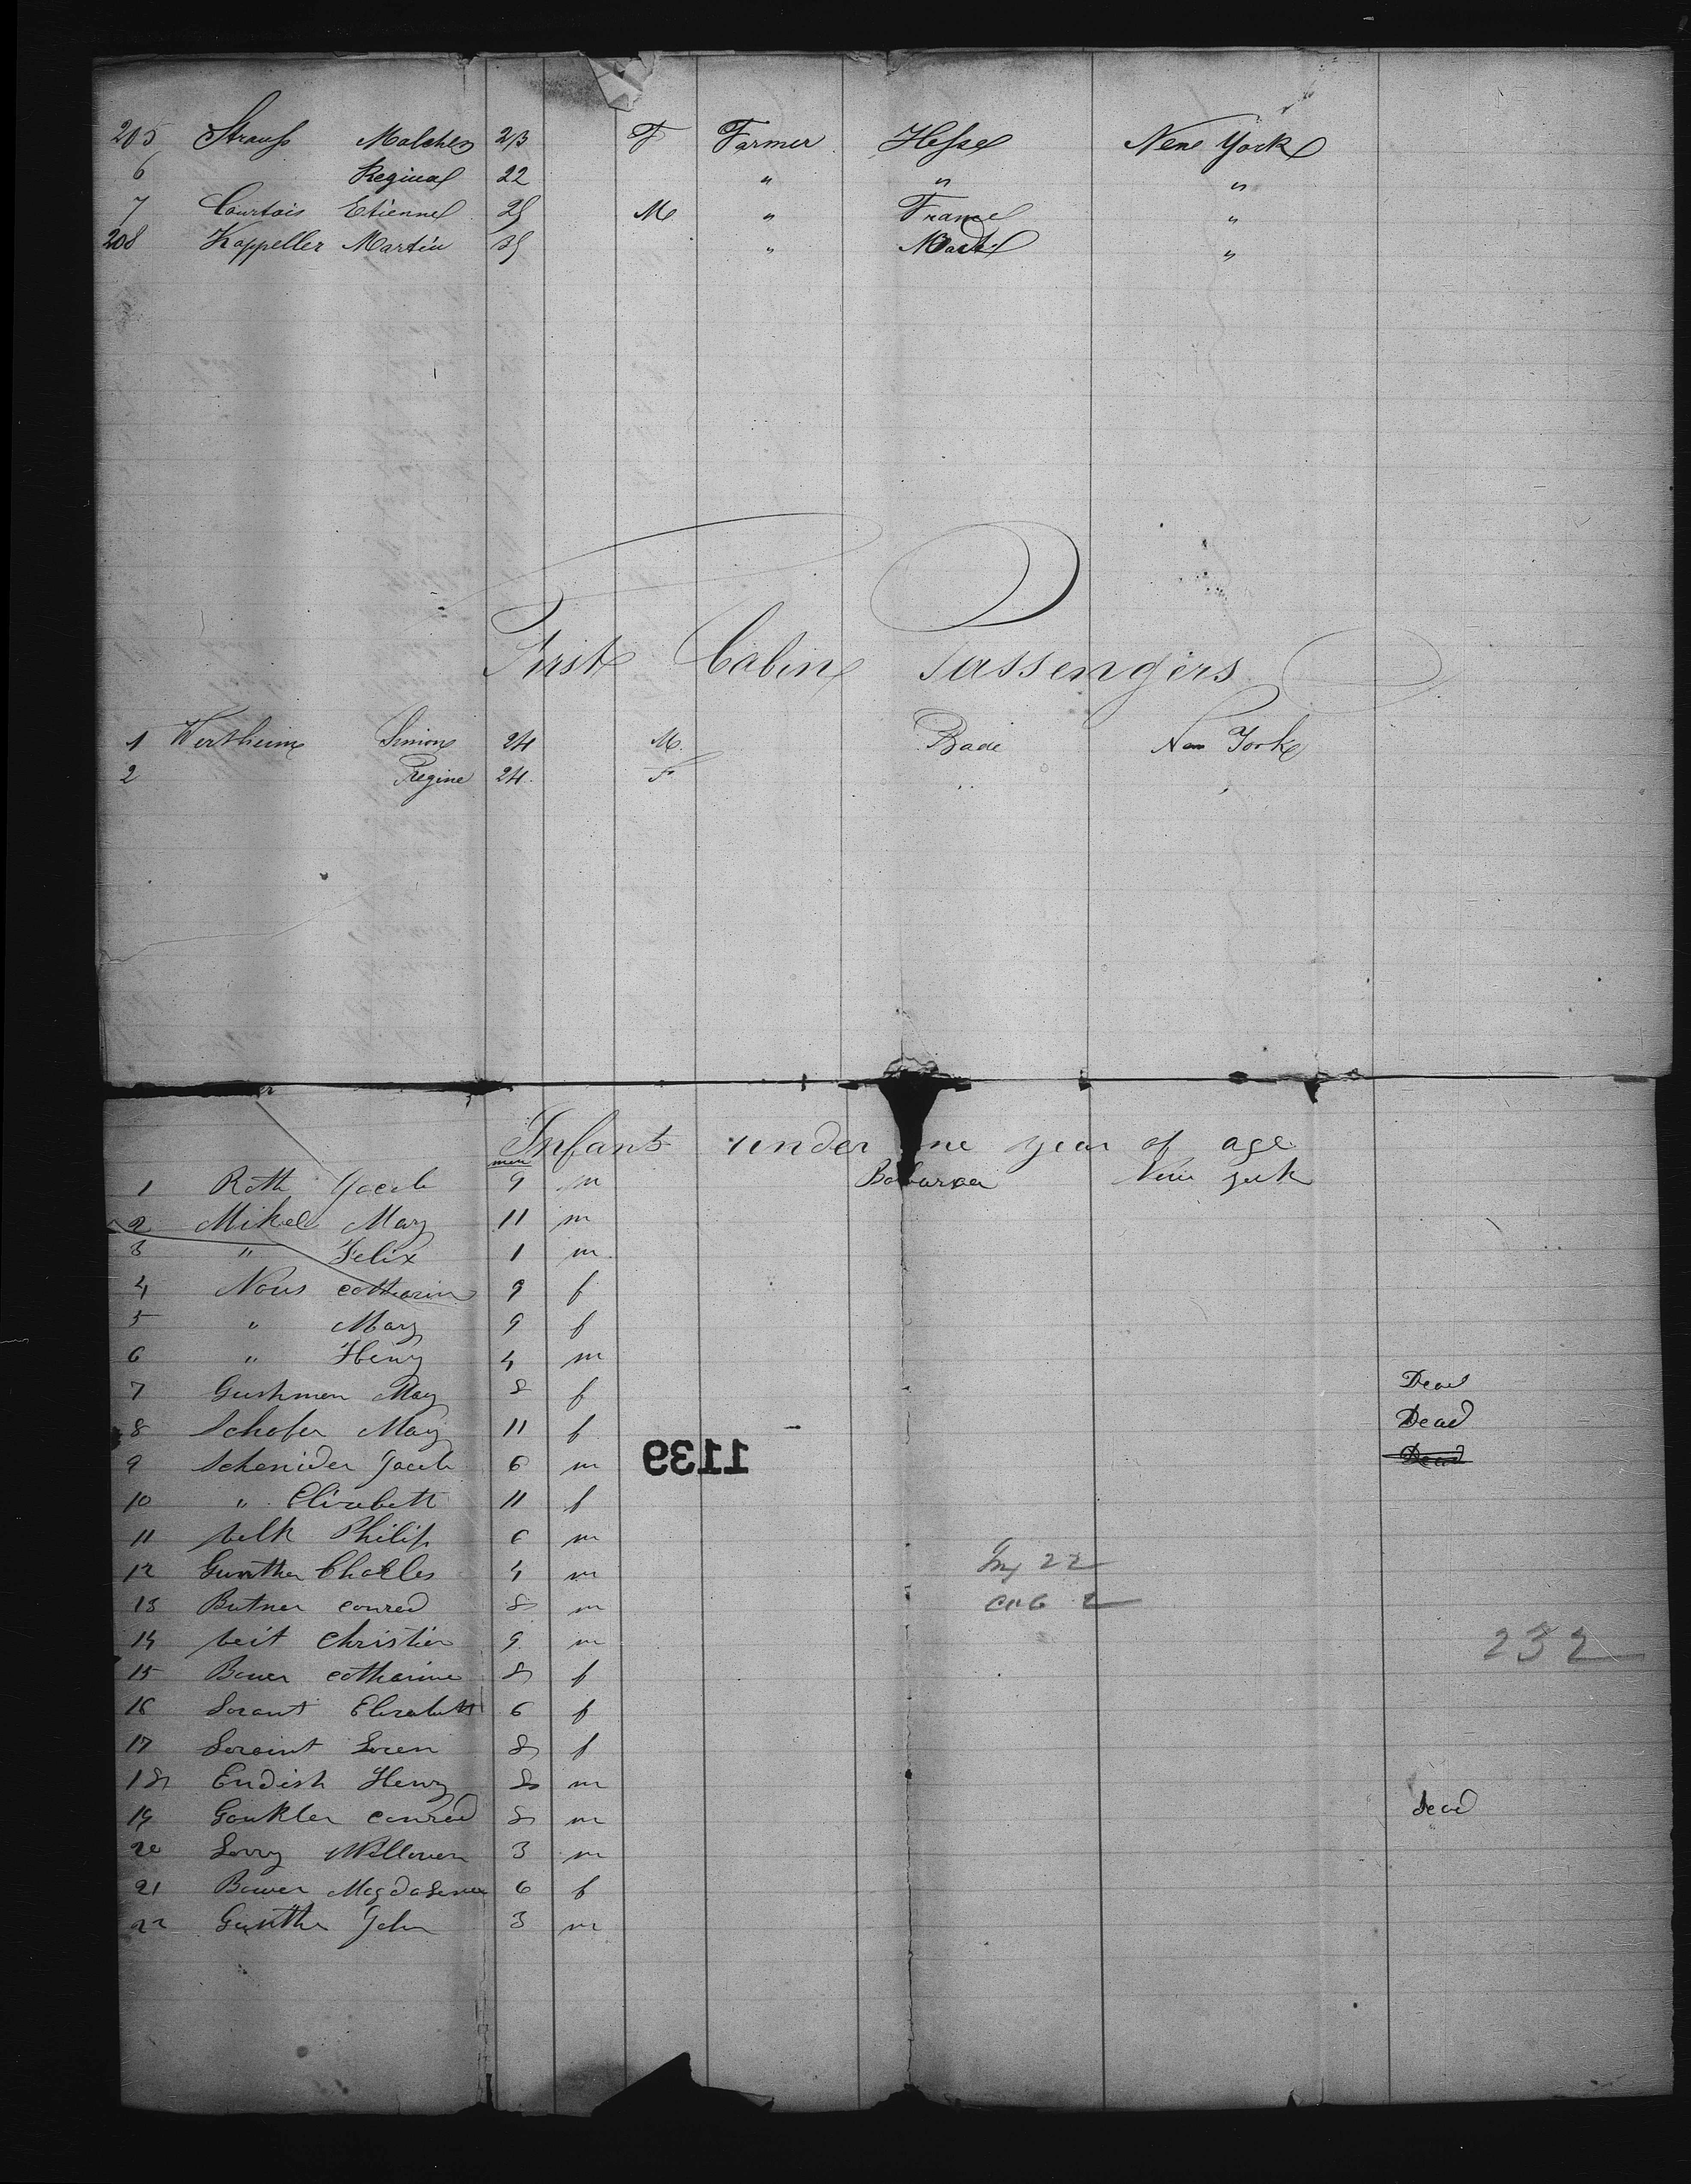 205 Strauß Malchen 23 F Farmer Hesse New York
6 Regina 22 " " "
7 Courtois Etienne 25 M " France "
208 Kappeller Martin 35 " "
First Cabin Passengers
1 Wertheim Simon 24 M. Bade New York
2 Regine 24. F " "
Infants under one year of age
1 Roth Jacob 9 m New York
2 Mikel May 11 m
3 " Felix 1 m.
4 Nous catharin 9 f
5 " Mary 9 f
6 " Henry 4 m
7 Gushmen May 8 f Dead
8 Schofer May 11 f Dead
9 Schenider Jacob 6 m Dead
1139
10 " Elizabeth 11 f
11 Philip 6 m
12 Gunther Charles 4 m Inf 22
13 Butner conred 8 m cab 2
14 Veit Christien 9 m 232
15 Bauer catharine 8 f
16 Sorant Elizabeth 6 f
17 Soraint 8 f
18 Endish Henry 8 m
19 Gonkler conred 8 m dead
20 3 m
21 Bauer Magdalena 6 f
22 Gunther John 3 m